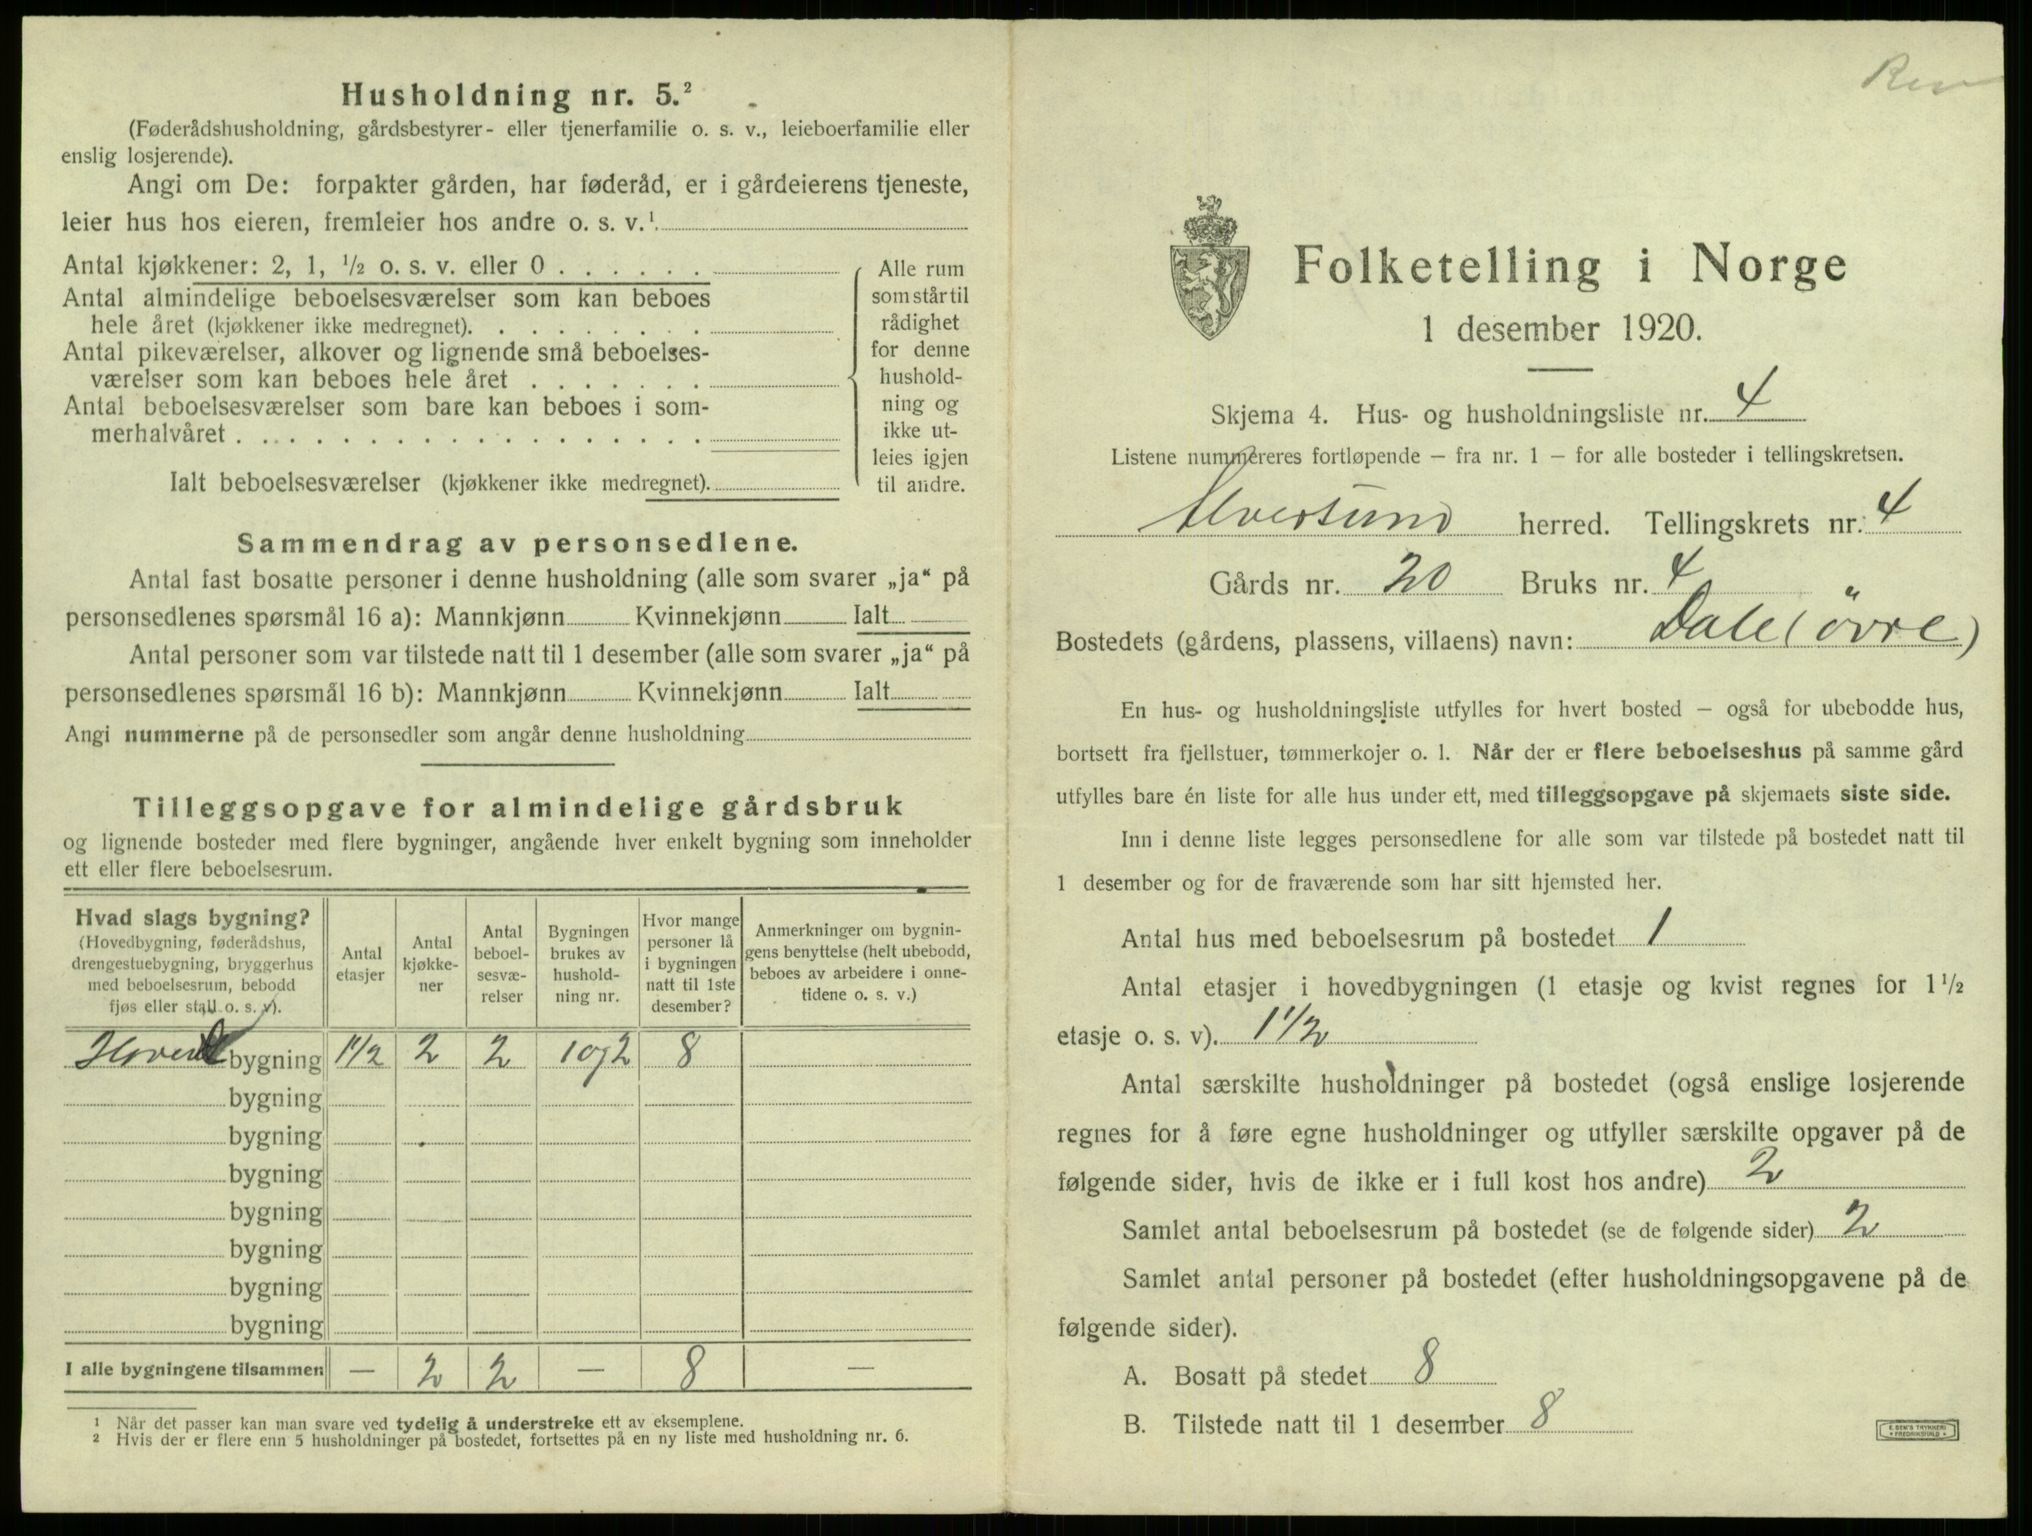 Husholdning nr. 5.²
(Føderådshusholdning, gårdsbestyrer- eller tjenerfamilie o. s. v., leieboerfamilie eller
enslig losjerende).
Angi om De: forpakter gården, har føderåd, er i gårdeierens tjeneste,
leier hus hos eieren, fremleier hos andre o. s. v.¹
Antal kjøkkener: 2, 1, ½ o. s. v. eller 0 . . . . . .
Antal almindelige beboelsesværelser som kan beboes
hele året (kjøkkener ikke medregnet). . . . . . . . .
Antal pikeværelser, alkover og lignende små beboelses-
værelser som kan beboes hele året . . . . . . .
Antal beboelsesværelser som bare kan beboes i som-
merhalvåret . . . . . . . . . . . . . . . . . .
Ialt beboelsesværelser (kjøkkener ikke medregnet).
Alle rum
som står til
rådighet
for denne
hushold-
ning og
ikke ut-
leies igjen
til andre.
Sammendrag av personsedlene.
Antal fast bosatte personer i denne husholdning (alle som svarer „ja“ på
personsedlenes spørsmål 16 a): Mannkjønn Kvinnekjønn Ialt
Antal personer som var tilstede natt til 1 desember (alle som svarer „ja“ på
personsedlenes spørsmål 16 b): Mannkjønn Kvinnekjønn Ialt
Angi nummerne på de personsedler som angår denne husholdning
Tilleggsopgave for almindelige gårdsbruk
og lignende bosteder med flere bygninger, angående hver enkelt bygning som inneholder
ett eller flere beboelsesrum.
Hvad slags bygning?
(Hovedbygning, føderådshus,
drengestuebygning, bryggerhus
med beboelsesrum, bebodd
fjøs eller stall o. s. v).
Antal
etasjer
Antal
kjøkke-
ner
Antal
beboel-
sesvæ-
relser
Bygningen
brukes av
hushold-
ning nr.
Hvor mange
personer lå
i bygningen
natt til 1ste
desember?
Anmerkninger om bygnin-
gens benyttelse (helt ubebodd,
beboes av arbeidere i onne-
tidene o. s. v.)
Hoved bygning 1½ 2 2 1 og 2 8
bygning
bygning
bygning
bygning
bygning
bygning
bygning
I alle bygningene tilsammen — 2 2 — 8 —
¹ Når det passer kan man svare ved tydelig å understreke ett av eksemplene.
² Hvis der er flere enn 5 husholdninger på bostedet, fortsettes på en ny liste med husholdning nr. 6.
Folketelling i Norge
1 desember 1920.
Skjema 4. Hus- og husholdningsliste nr. 4
Listene nummereres fortløpende – fra nr. 1 – for alle bosteder i tellingskretsen.
Alversund herred. Tellingskrets nr. 4
Gårds nr. 20 Bruks nr. 4
Bostedets (gårdens, plassens, villaens) navn: Dale (övre)
En hus- og husholdningsliste utfylles for hvert bosted – også for ubebodde hus,
bortsett fra fjellstuer, tømmerkojer o. l. Når der er flere beboelseshus på samme gård
utfylles bare én liste for alle hus under ett, med tilleggsopgave på skjemaets siste side.
Inn i denne liste legges personsedlene for alle som var tilstede på bostedet natt til
1 desember og for de fraværende som har sitt hjemsted her.
Antal hus med beboelsesrum på bostedet 1
Antal etasjer i hovedbygningen (1 etasje og kvist regnes for 1½
etasje o. s. v). 1½
Antal særskilte husholdninger på bostedet (også enslige losjerende
regnes for å føre egne husholdninger og utfyller særskilte opgaver på de
følgende sider, hvis de ikke er i full kost hos andre) 2
Samlet antal beboelsesrum på bostedet (se de følgende sider) 2
Samlet antal personer på bostedet (efter husholdningsopgavene på de
følgende sider).
A. Bosatt på stedet 8
B. Tilstede natt til 1 desember 8
E. SEM'S TRYKKERI
FREDRIKSHALD